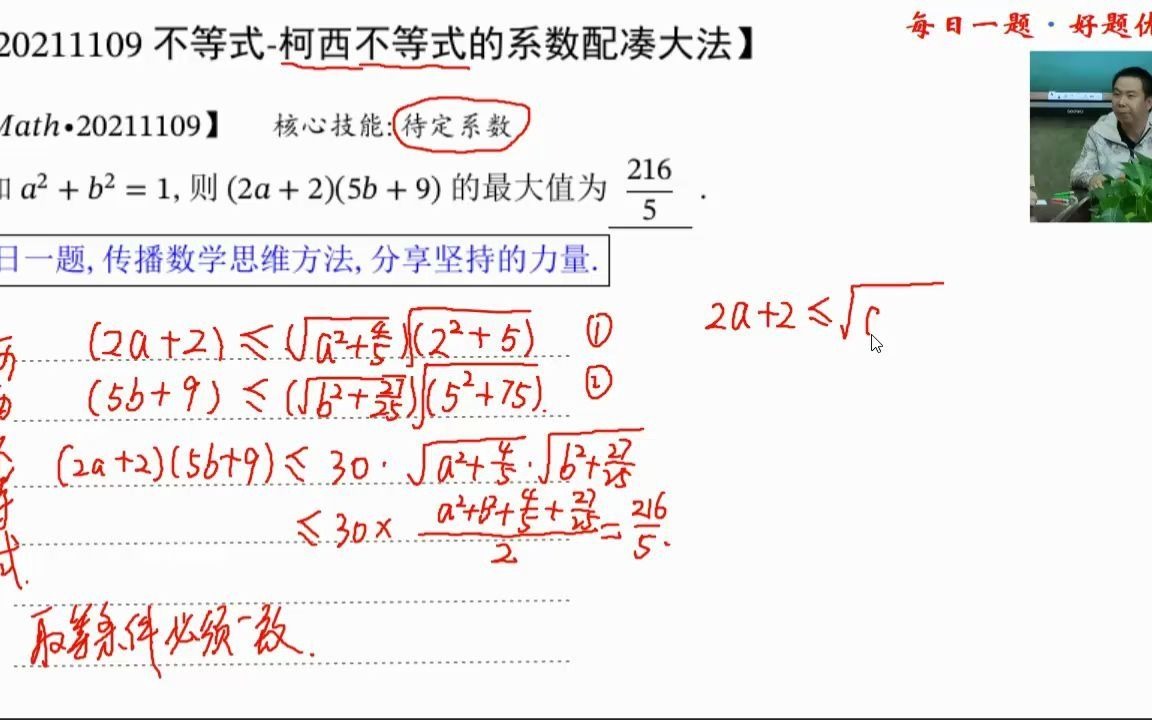 20211109 不等式-柯西不等式的系数配凑大法】
每日一题·好题优
Math•20211109】 核心技能:待定系数
知 a² + b² = 1, 则 (2a + 2)(5b + 9) 的最大值为 216/5 .
日一题, 传播数学思维方法, 分享坚持的力量.
(2a+2) ≤ (√(a²+4/5))√(2²+5) ①
(5b+9) ≤ (√(b²+27/25))√(5²+75) ②
(2a+2)(5b+9) ≤ 30·√(a²+4/5)·√(b²+27/25)
≤ 30× (a²+b²+4/5+27/25)/2 = 216/5.
取等条件必须一致.
2a+2 ≤ √(
等
式.